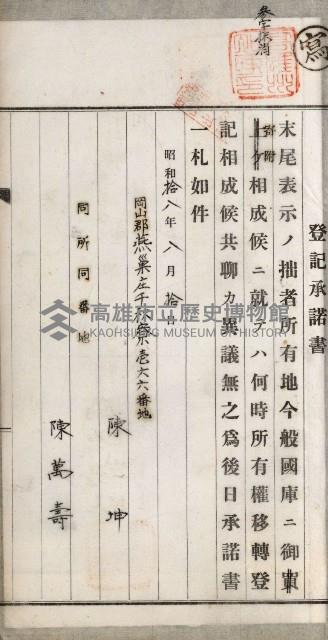 寫
登記承諾書
末尾表示ノ拙者所有地今般國庫ニ御買
上ケ相成候ニ就テハ何時所有權移轉登
寄附
記相成候共聊カ異議無之爲後日承諾書
一札如件
昭和拾八年八月拾日
岡山郡燕巢庄千秋寮壱六六番地
陳坤
同所同番地
陳萬壽
高雄市立歷史博物館
KAOHSIUNG MUSEUM OF HISTORY